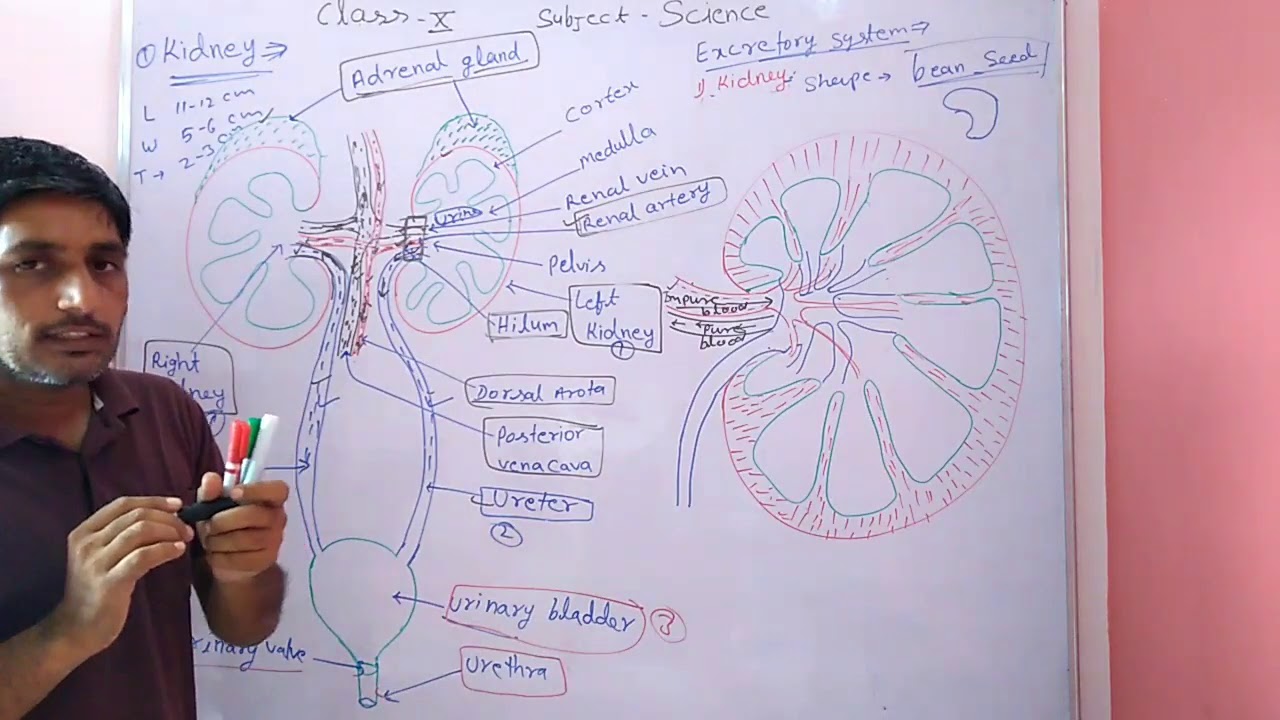 Class - X Subject - Science
① Kidney ⇒
L 11-12 cm
W 5-6 cm
T → 2-3 cm
Adrenal gland
Excretory system ⇒
1). Kidney: Shape → bean seed
Cortex
medulla
Renal vein
Renal artery
Urine
Pelvis
Left
Kidney
①
Hilum
Impure
blood
Pure
blood
Right
ney
Dorsal Arota
Posterior
venacava
Ureter
②
Urinary bladder ③
rinary valve
Urethra